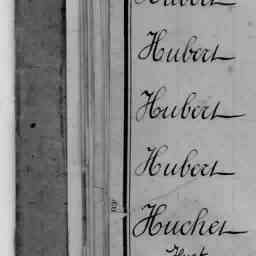 Hubert
Hubert
Hubert
Hubert
Huchet